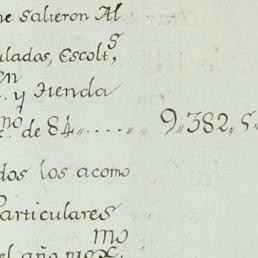 ne salieron Al
uladas, Escolt.s,
en
. y tienda
mo de 84..... 9,,382,,5,,
dos los acomo
Particulares
mo
el año